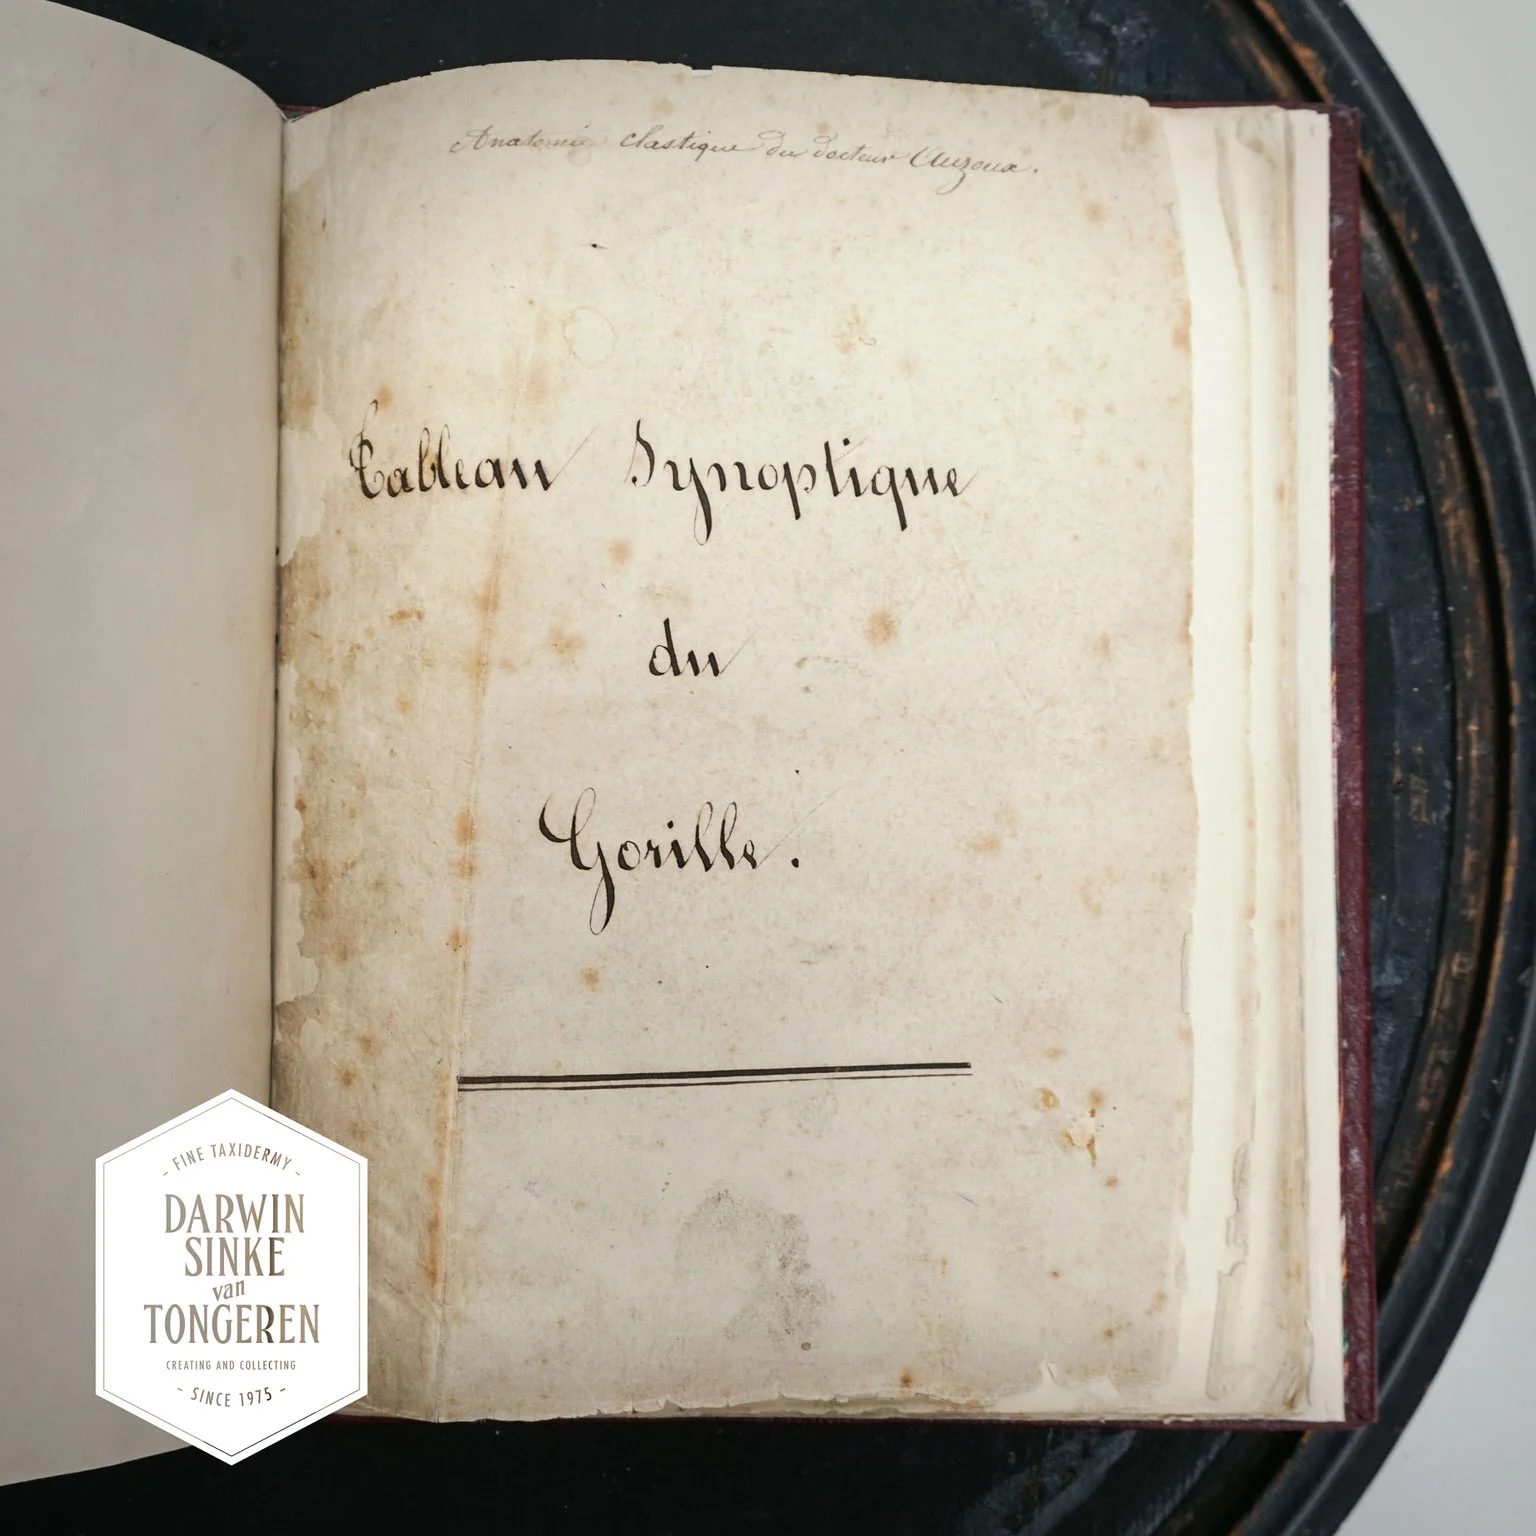 Anatomie clastique du docteur Auzoux.
Tableau Synoptique
du
Gorille.
- FINE TAXIDERMY -
DARWIN
SINKE
van
TONGEREN
CREATING AND COLLECTING
- SINCE 1975 -